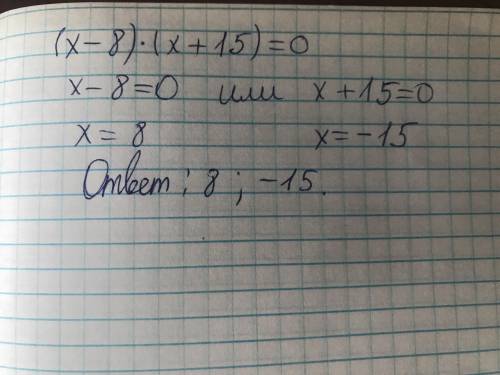 (x-8)·(x+15)=0
x-8=0 или x+15=0
x=8 x=-15
Ответ: 8; -15.